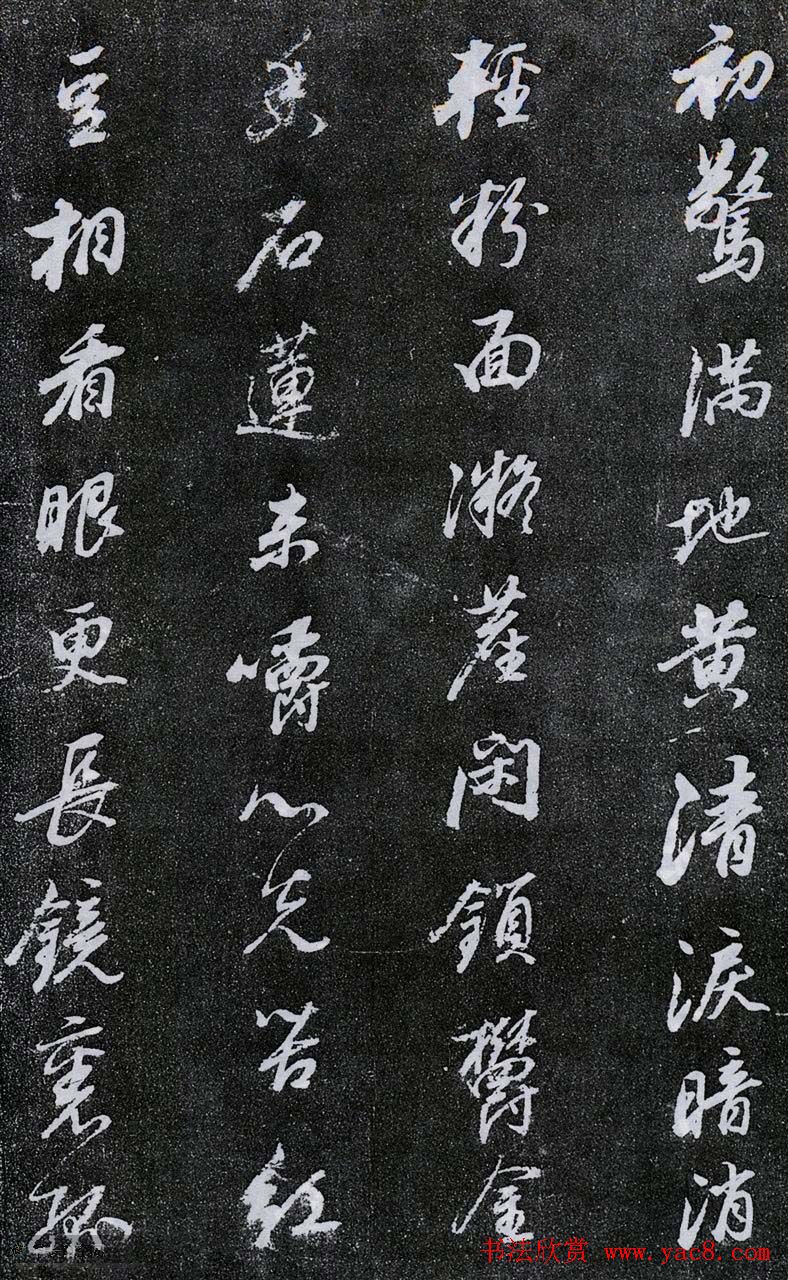 初驚滿地黃清淚暗消
輕粉面凝塵閑鎖鬱金
香石蓮未嚼心先苦紅
豆相看眼更長鏡裏孤
书法欣赏 www.yac8.com